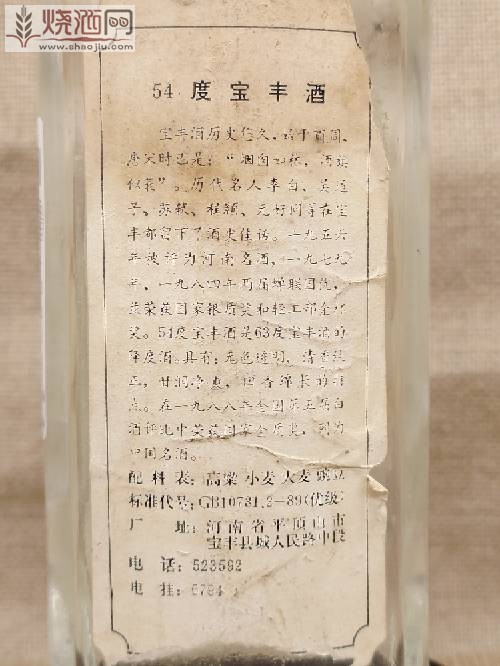 烧酒网
www.shaojiu.com
54 度宝丰酒
宝丰酒历史悠久，始于商周，
唐宋时已是：“烟囱如林，酒旗
似花”。历代名人李白、吴道
子、苏轼、程颢、元好问等在宝
丰都留下了酒史佳话。一九五六
年被评为河南名酒，一九七九
年、一九八四年两届蝉联国优，
并荣获国家银质奖和轻工部金杯
奖。54度宝丰酒是63度宝丰酒的
降度酒。具有：无色透明，清香纯
正，甘润净爽，回香绵长的特
点。在一九八八年全国第五届白
酒评比中荣获国家金质奖，列为
中国名酒。
配料表：高粱 小麦 大麦 豌豆
标准代号：GB10781.2—89(优级)
厂址：河南省平顶山市
宝丰县城人民路中段
电话：523592
电挂：6794